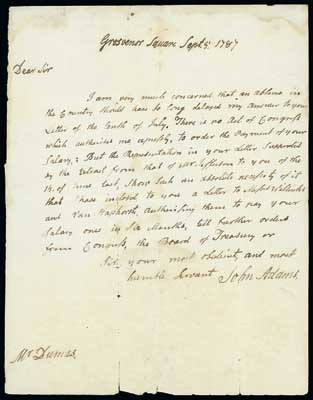 Grosvenor Square Sept. 5. 1787
Dear Sir
I am very much concerned that an absence in
the Country should have so long delayed my Answer to your
Letter of the tenth of July. There is no Act of Congress
which authorises me expressly, to order the Payment of your
Salary: But the Representation in your Letter Supported
by the Extract from that of Mr Jefferson to you of the
14. of June last, Shew Such an absolute necessity of it
that I have inclosed to you a Letter to Messrs Willinks
and Van Staphorsts, authorising them to pay your
Salary once in Six Months, till further orders
from Congress, the Board of Treasury or
Sir, your most obedient and most
humble Servant John Adams.
Mr Dumas.